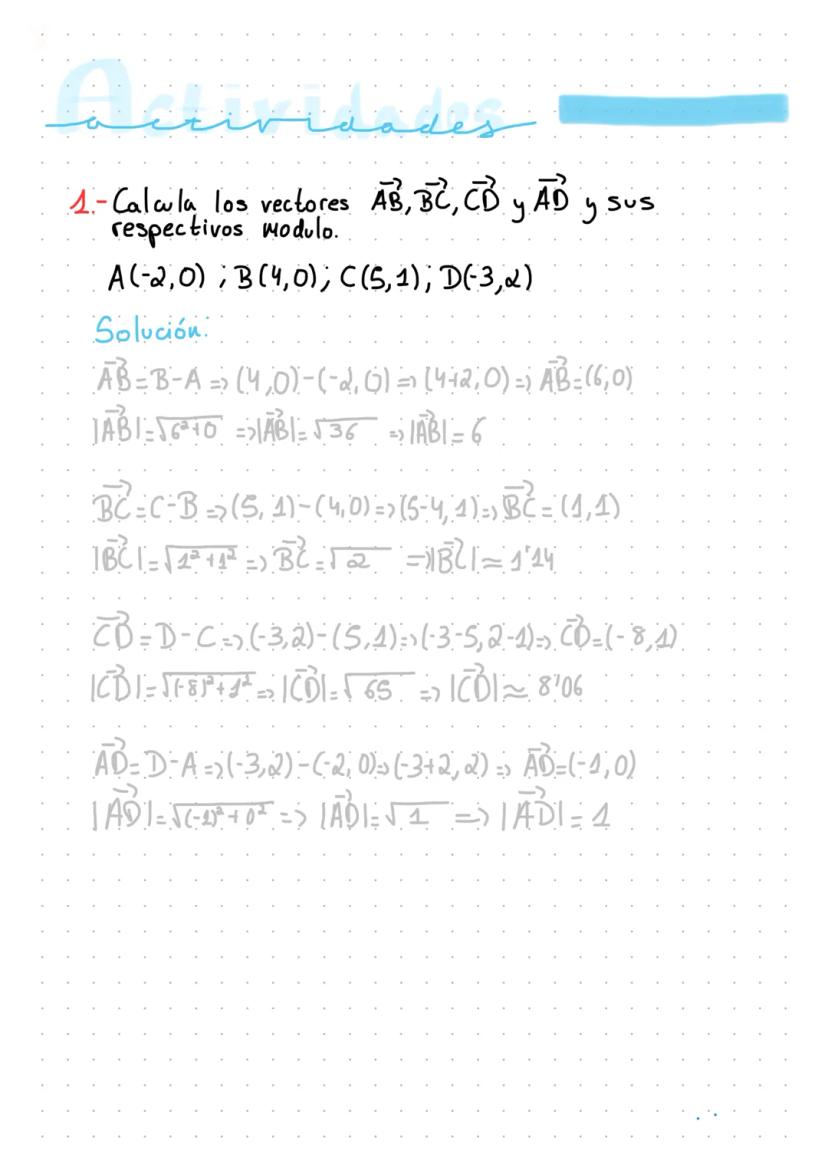 Actividades
actividades
1.- Calcula los vectores A⃗B⃗, B⃗C⃗, C⃗D⃗ y A⃗D⃗ y sus
respectivos modulo.
A(-2,0) ; B(4,0); C(5,1); D(-3,2)
Solución:
A⃗B⃗=B-A => (4,0)-(-2,0) => (4+2,0) => A⃗B⃗=(6,0)
|A⃗B⃗|=√6²+0 => |A⃗B⃗|=√36 => |A⃗B⃗|=6
B⃗C⃗=C-B => (5,1)-(4,0) => (5-4,1) => B⃗C⃗=(1,1)
|B⃗C⃗|=√1²+1² => B⃗C⃗=√2 => |B⃗C⃗|≈1'14
C⃗D⃗=D-C => (-3,2)-(5,1) => (-3-5,2-1) => C⃗D⃗=(-8,1)
|C⃗D⃗|=√(-8)²+1² => |C⃗D⃗|=√65 => |C⃗D⃗|≈8'06
A⃗D⃗=D-A => (-3,2)-(-2,0) => (-3+2,2) => A⃗D⃗=(-1,0)
|A⃗D⃗|=√(-1)²+0² => |A⃗D⃗|=√1 => |A⃗D⃗|=1